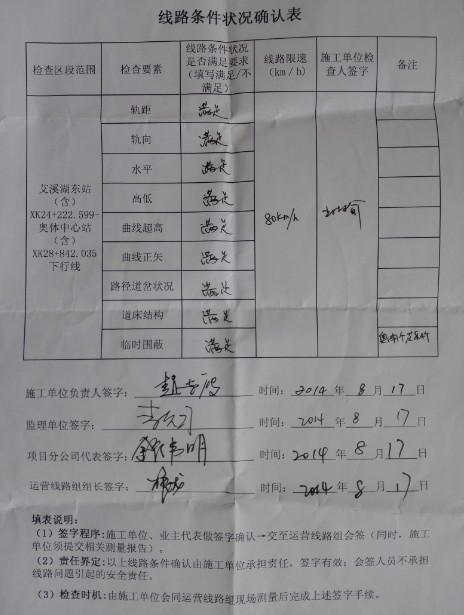 线路条件状况确认表
检查区段范围 检查要素 线路条件状况是否满足要求（填写满足/不满足） 线路限速（km/h） 施工单位检查人签字 备注
艾溪湖东站（含）XK24+222.599-奥体中心站（含）XK28+842.035下行线
轨距 满足
轨向 满足
水平 满足
高低 满足
曲线超高 满足 80km/h
曲线正矢 满足
路径道岔状况 满足
道床结构 满足
临时围蔽 满足
施工单位负责人签字： 时间：2014 年 8 月 17 日
监理单位签字： 时间：2014 年 8 月 17 日
项目分公司代表签字： 时间：2014 年 8 月 17 日
运营线路组组长签字： 时间：2014 年 8 月 17 日
填表说明：
（1）签字程序：施工单位、业主代表做签字确认→交至运营线路组会签（同时，施工
单位须提交相关测量报告）。
（2）责任界定：以上线路条件确认由施工单位承担责任，签字有效；会签人员不承担
线路问题引起的安全责任。
（3）检查时机：由施工单位会同运营线路组现场测量后完成上述签字手续。